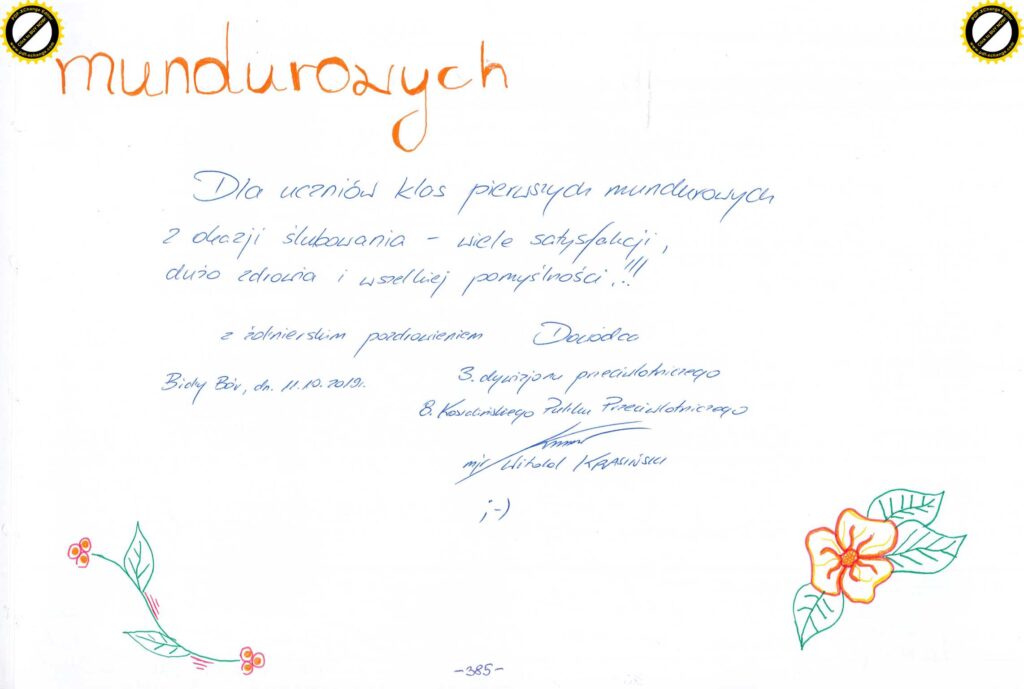 mundurowych
Dla uczniów klas pierwszych mundurowych
z okazji ślubowania - wiele satysfakcji,
dużo zdrowia i wszelkiej pomyślności!!!
z żołnierskim pozdrowieniem Dowódca
Biały Bór, dn. 11.10.2019r. 3. dywizjonu przeciwlotniczego
8. Koszalińskiego Pułku Przeciwlotniczego
mjr Witold KRASIŃSKI
;-)
-385-